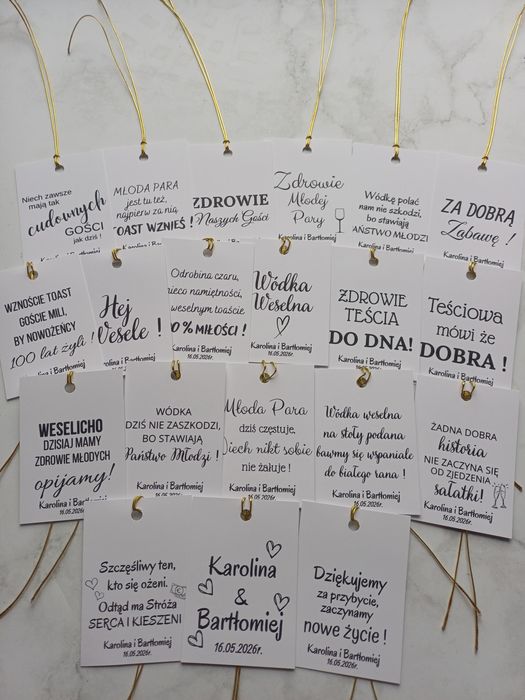 Niech zawsze
mają tak
cudownych
GOŚCI
jak dziś !
MŁODA PARA
jest tu też,
najpierw za nią
TOAST WZNIEŚ !
Karolina i Bartłomiej
ZDROWIE
Naszych Gości
Karolina i Bartłomiej
Zdrowie
Młodej
Pary
Karolina i Bartłomiej
Wódkę polać
nam nie szkodzi,
bo stawiają
PAŃSTWO MŁODZI
Karolina i Bartłomiej
ZA DOBRĄ
Zabawę !
Karolina i Bartłomiej
WZNOŚCIE TOAST
GOŚCIE MILI,
BY NOWOŻEŃCY
100 lat żyli !
Karolina i Bartłomiej
Hej
Wesele !
Karolina i Bartłomiej
Odrobina czaru,
nieco namiętności,
w weselnym toaście
100 % MIŁOŚCI !
Karolina i Bartłomiej
16.05.2026r.
Wódka
Weselna
Karolina i Bartłomiej
16.05.2026r.
ZDROWIE
TEŚCIA
DO DNA!
Karolina i Bartłomiej
16.05.2026r.
Teściowa
mówi że
DOBRA !
Karolina i Bartłomiej
WESELICHO
DZISIAJ MAMY
ZDROWIE MŁODYCH
opijamy!
Karolina i Bartłomiej
16.05.2026r.
WÓDKA
DZIŚ NIE ZASZKODZI,
BO STAWIAJĄ
Państwo Młodzi !
Karolina i Bartłomiej
16.05.2026r.
Młoda Para
dziś częstuje,
Niech nikt sobie
nie żałuje !
Karolina i Bartłomiej
16.05.2026r.
Wódka weselna
na stoły podana
bawmy się wspaniale
do białego rana !
Karolina i Bartłomiej
16.05.2026r.
ŻADNA DOBRA
historia
NIE ZACZYNA SIĘ
OD ZJEDZENIA
sałatki!
Karolina i Bartłomiej
16.05.2026r.
Szczęśliwy ten,
kto się ożeni.
Odtąd ma Stróża
SERCA I KIESZENI
Karolina i Bartłomiej
16.05.2026r.
Karolina
&
Bartłomiej
16.05.2026r.
Dziękujemy
za przybycie,
zaczynamy
nowe życie !
Karolina i Bartłomiej
16.05.2026r.